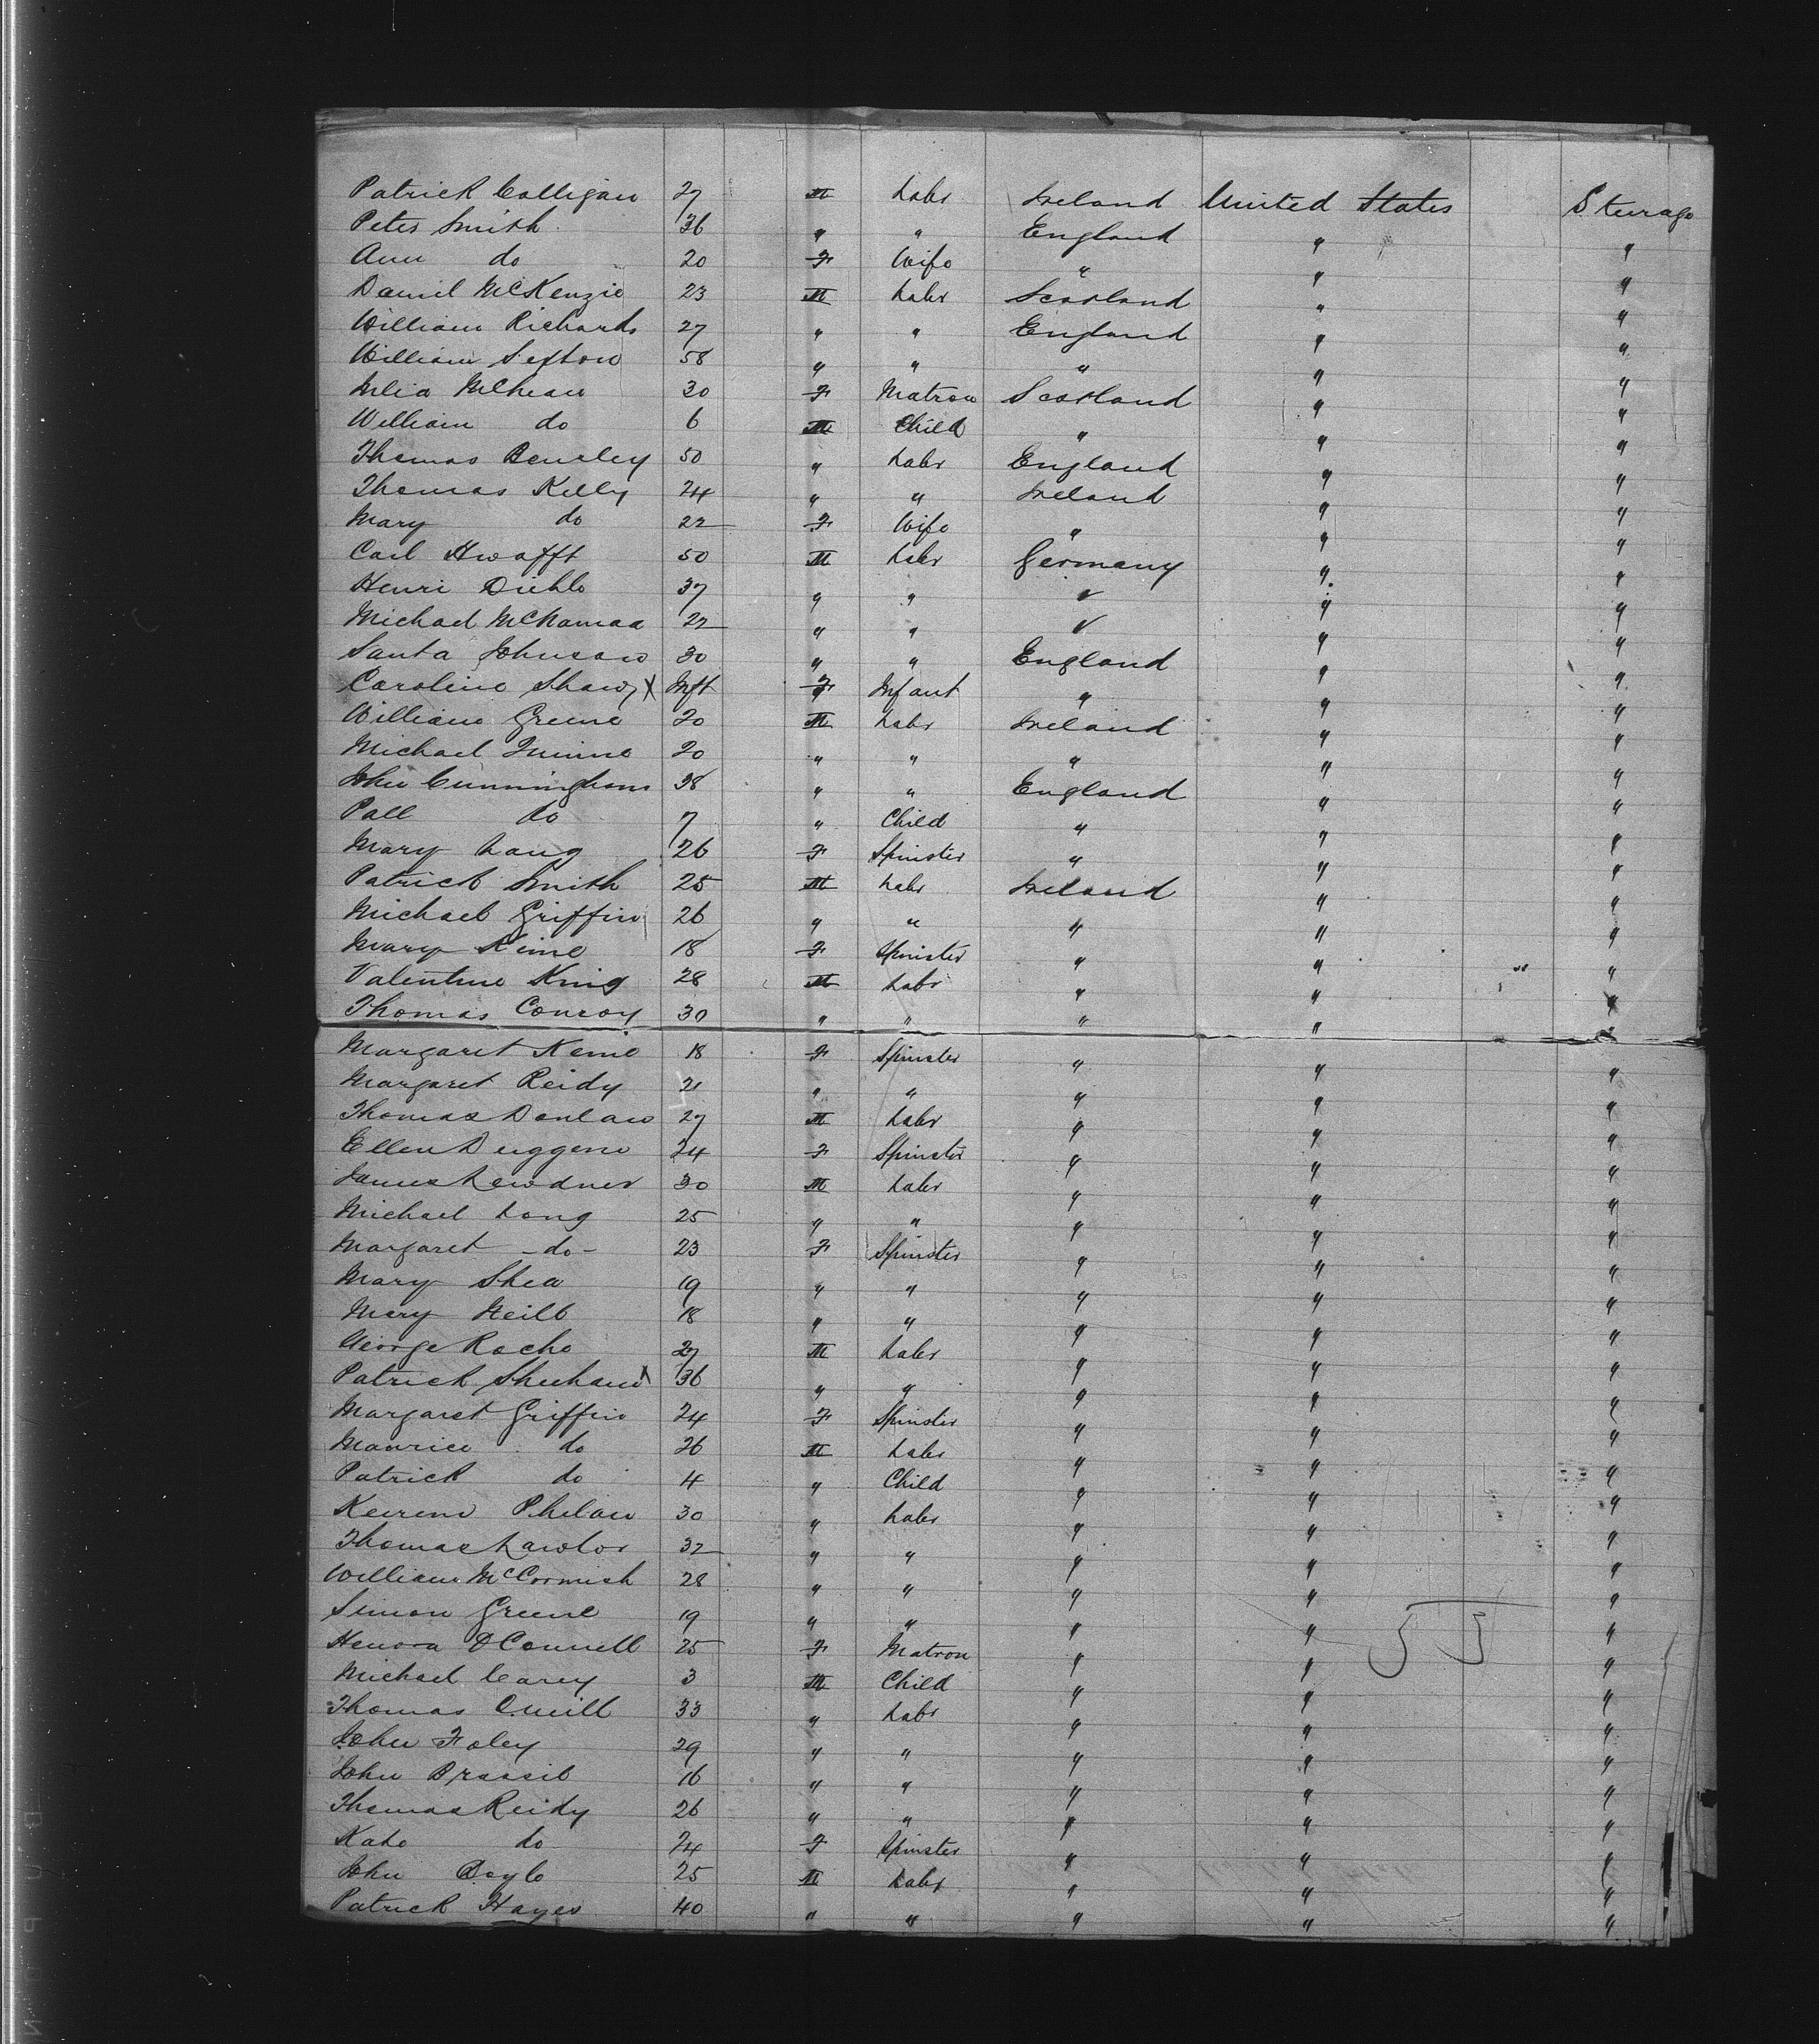 Patrick Colligan 27 M Labr Ireland United States Steerage
Peter Smith 36 " " England " "
Ann do 20 F Wife " " "
Daniel McKenzie 23 M Labr Scotland " "
William Richards 27 " " England " "
William Sefton 58 " " " " "
30 F Matron Scotland " "
William do 6 M Child " " "
Thomas 50 " Labr England " "
Thomas Kelly 24 " " Ireland " "
Mary do 22 F Wife " " "
Carl 50 M Labr Germany " "
Henri Diehl 37 " " " " "
Michael McNamaa 22 " " " " "
Santa Johnson 30 " " England " "
Caroline Shaw X Inft F Infant " " "
William Greene 20 M Labr Ireland " "
Michael 20 " " " " "
John Cunningham 38 " " England " "
Pall do 7 " Child " " "
Mary Lang 26 F Spinster " " "
Patrick Smith 25 M Labr Ireland " "
Michael Griffin 26 " " " " "
Mary 18 F Spinster " " "
Valentine King 28 M Labr " " "
Thomas Conroy 30 " " " " "
Margaret 18 F Spinster " " "
Margaret Reidy 21 " " " " "
Thomas 27 M Labr " " "
Ellen Duggene 24 F Spinster " " "
James 30 M Labr " " "
Michael Long 25 " " " " "
Margaret - do - 23 F Spinster " " "
Mary Shea 19 " " " " "
Mary Neill 18 " " " " "
George Roche 27 M Labr " " "
Patrick Sheehan X 36 " " " " "
Margaret Griffin 24 F Spinster " " "
Maurice do 26 M Labr " " "
Patrick do 4 " Child " " "
Phelan 30 " Labr " " "
Thomas Lawlor 32 " " " " "
William McCormick 28 " " " " "
Simon Greene 19 " " " " "
Honora O Connell 25 F Matron " " "
Michael Carey 3 M Child " " "
Thomas 33 " Labr " " "
John Foley 29 " " " " "
John Brassil 16 " " " " "
Thomas Reidy 26 " " " " "
Kate do 24 F Spinster " " "
John Doyle 25 M Labr " " "
Patrick Hayes 40 " " " " "